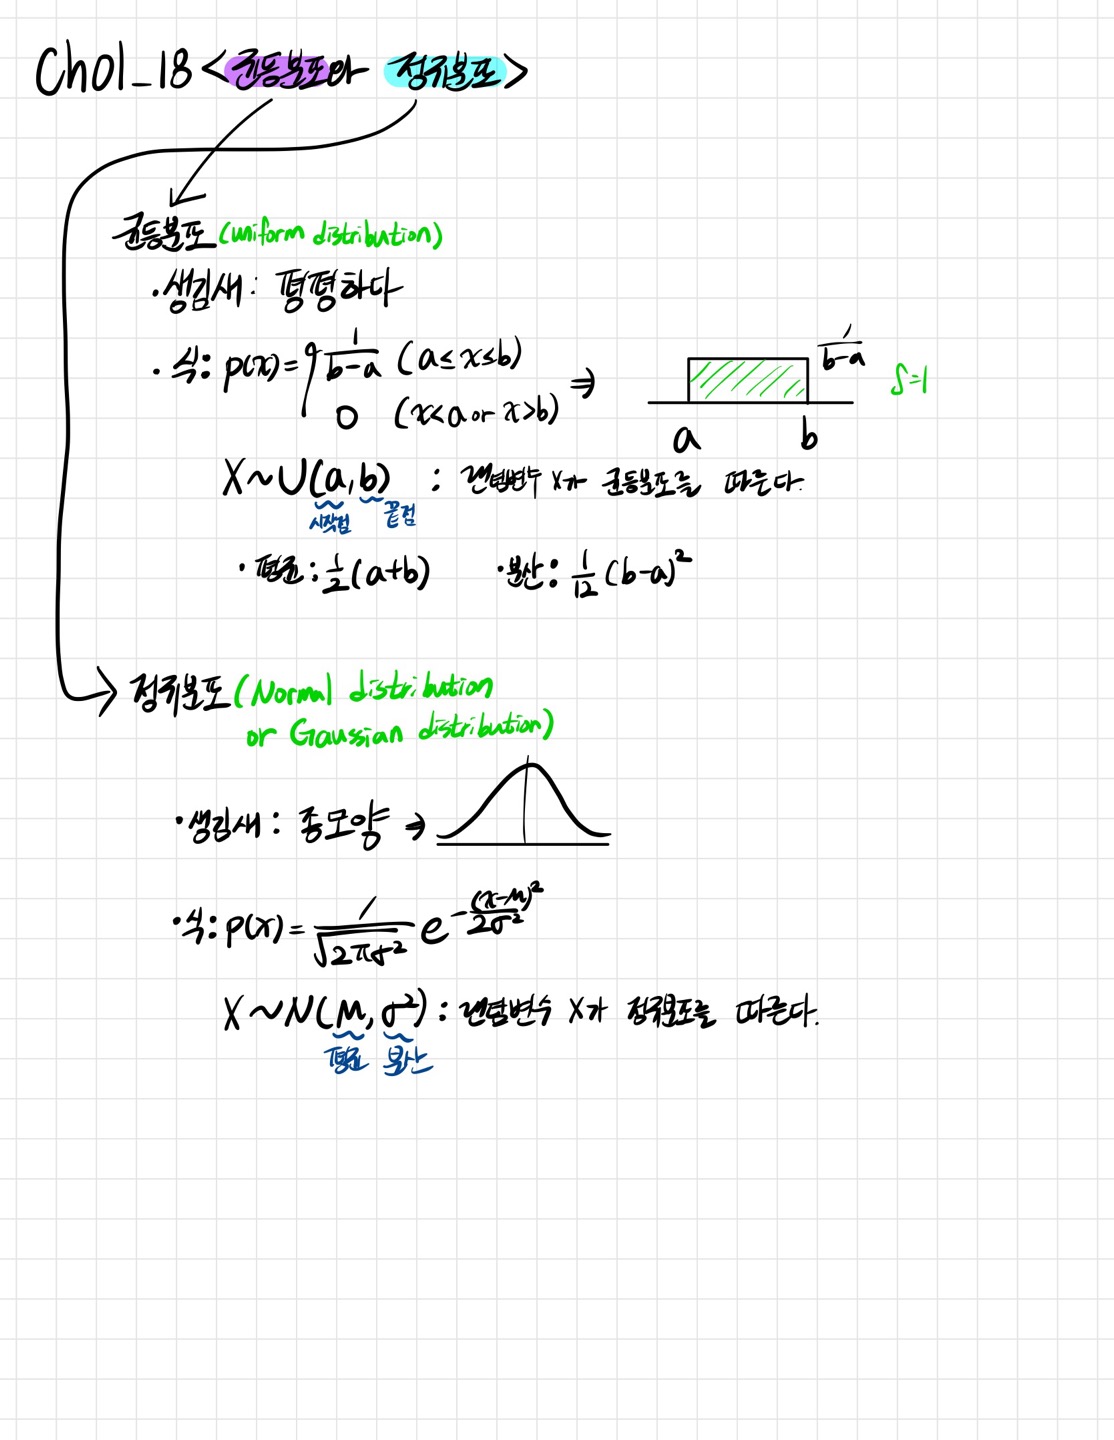 Ch01_18 <균등분포와 정규분포>
균등분포 (uniform distribution)
· 생김새 : 평평하다
· 식 : p(x) = { 1/(b-a) (a ≤ x ≤ b)
0 (x<a or x>b) ⇒
1/(b-a)
S=1
a b
X ~ U(a, b) : 랜덤변수 X가 균등분포를 따른다.
시작점 끝점
· 평균 : 1/2 (a+b) · 분산 : 1/12 (b-a)²
정규분포 (Normal distribution
or Gaussian distribution)
· 생김새 : 종모양 ⇒
· 식 : p(x) = 1/√(2πσ²) e^(-(x-μ)²/2σ²)
X ~ N(μ, σ²) : 랜덤변수 X가 정규분포를 따른다.
평균 분산